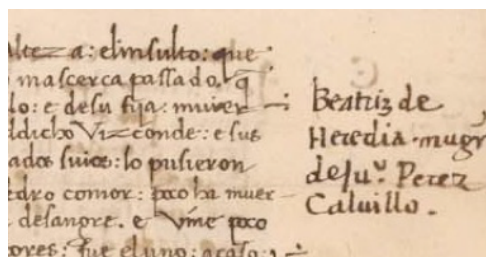 Alteza: el insulto: que
mascerca passado. q̄
lo: e desu fija: muier
ddicho Vizconde: e sus
ados suios: lo pusieron
edro comor: poco ha muer
desangre. e vime poco
ores: fue el uno: acaso:
Beatriz de
Heredia mugr
de Ju.º Perez
Calvillo.